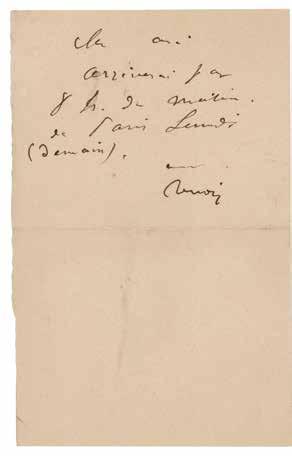 Cher ami
arriverai par
8 h. du matin.
de Paris Lundi
(demain).
Renoir